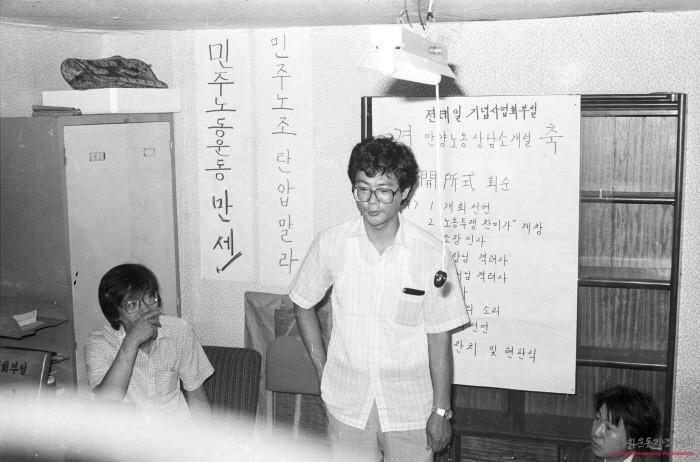 민주노동운동 만세
민주노조 탄압말라
전태일 기념사업회부설
경 안양노동상담소개설 축
開所式 회순
1. 개회선언
2. 노동투쟁 찬미가" 제창
소장 인사
격려사
격려사
소리
선언
잔치 및 현판식
회부설